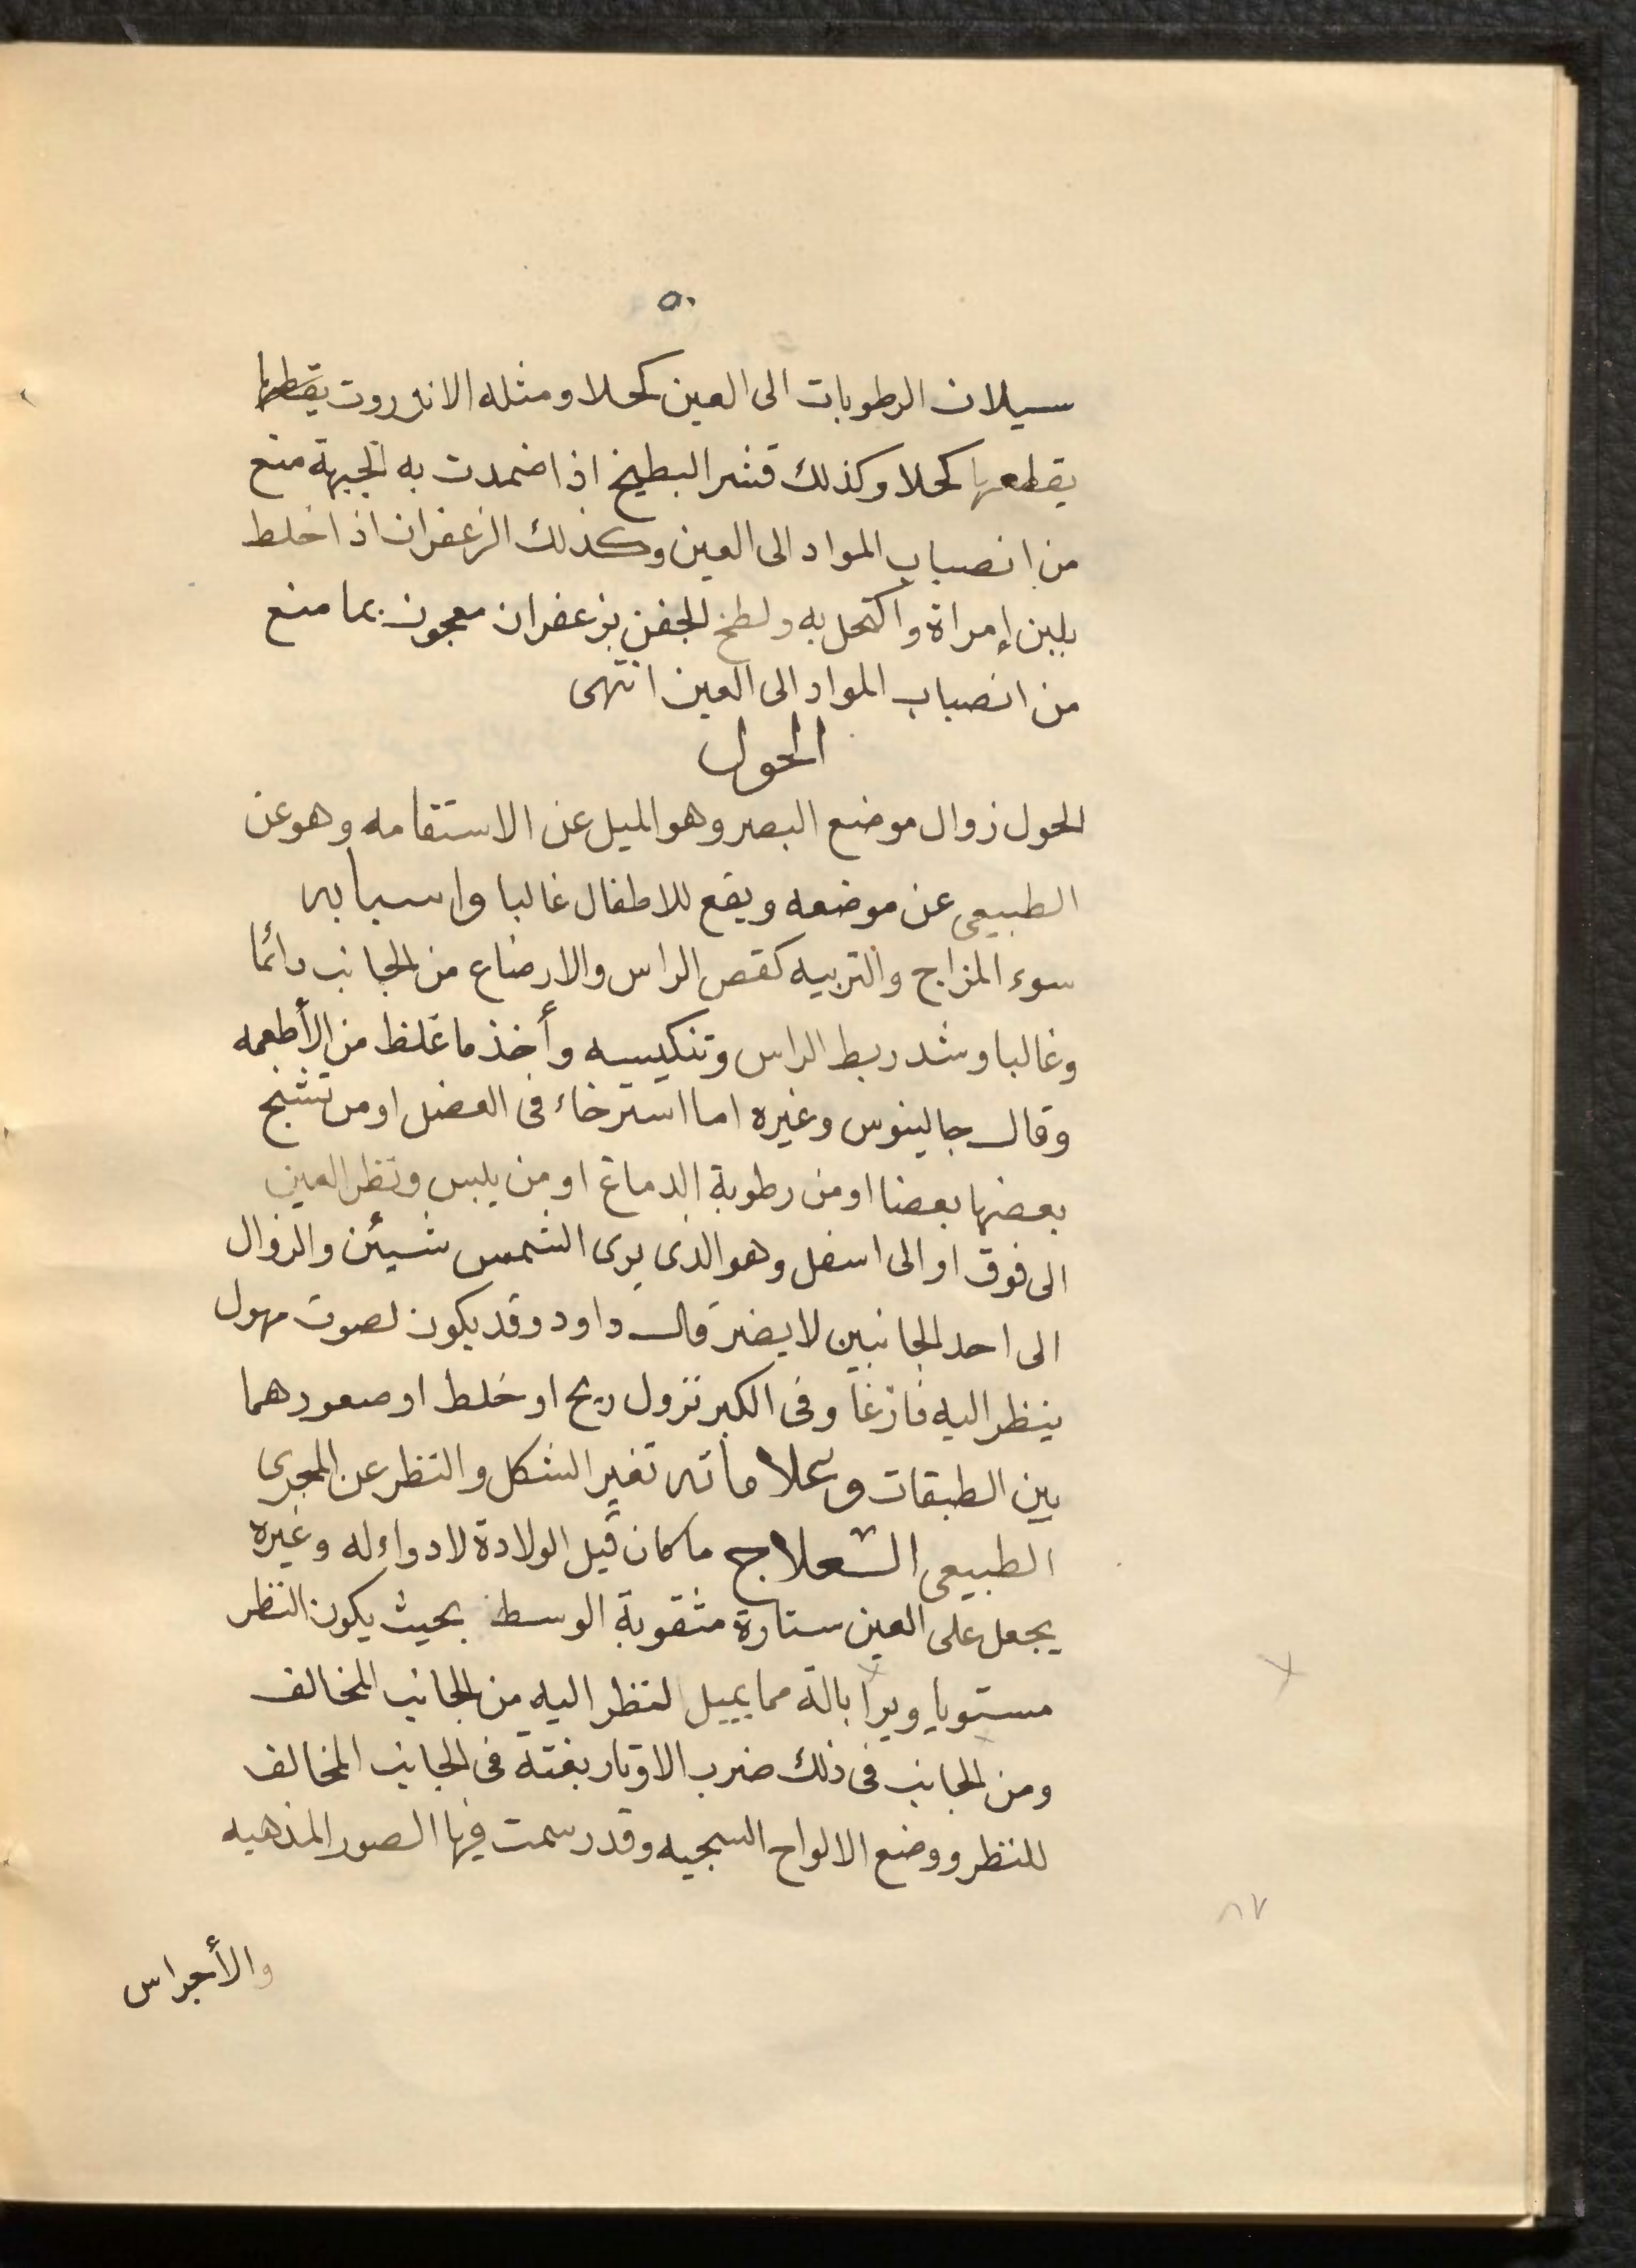 ٥٠
سيلان الرطوبات الى العين كحلا ومثله الانزروت يقطعها
يقطعها كحلا وكذلك قشر البطيخ اذا ضمدت به الجبهة منع
من انصباب المواد الى العين وكذلك الزعفران اذا خلط
بلبن إمراة واكتحل به ولطخ الجفن بزعفران معجون بما منع
من انصباب المواد الى العين انتهى
الحول
الحول زوال موضع البصر وهو الميل عن الاستقامه وهو عن
الطبيعى عن موضعه ويقع للاطفال غالبا واسبابه
سوء المزاج والتربيه كقص الراس والارضاع من الجانب دائما
وغالبا وشد ربط الراس وتنكيسه وأخذ ما غلظ من الأطعمه
وقال جالينوس وغيره اما استرخاء فى العضل او من تشنج
بعضها بعضا او من رطوبة الدماغ او من يبس ونظر العين
الى فوق او الى اسفل وهو الذى يرى الشمس شيئن والزوال
الى احد الجانبين لا يضر قال داود وقد يكون لصوت مهول
ينظر اليه فازغا وفى الكبر نزول ريح او خلط او صعودهما
بين الطبقات وعلاماته تغير الشكل والنظر عن المجرى
الطبيعى العلاج ما كان قبل الولادة لا دواء له وغيره
يجعل على العين ستارة مثقوبة الوسط بحيث يكون النظر
مستويا ويرا بالة مما يميل لنظر اليه من الجانب المخالف
ومن الجانب فى ذلك ضرب الاوتار بغتة فى الجانب المخالف
للنظر ووضع الالواح السجيه وقد رسمت فيها الصور المذهبه
٨٧
والأجراس